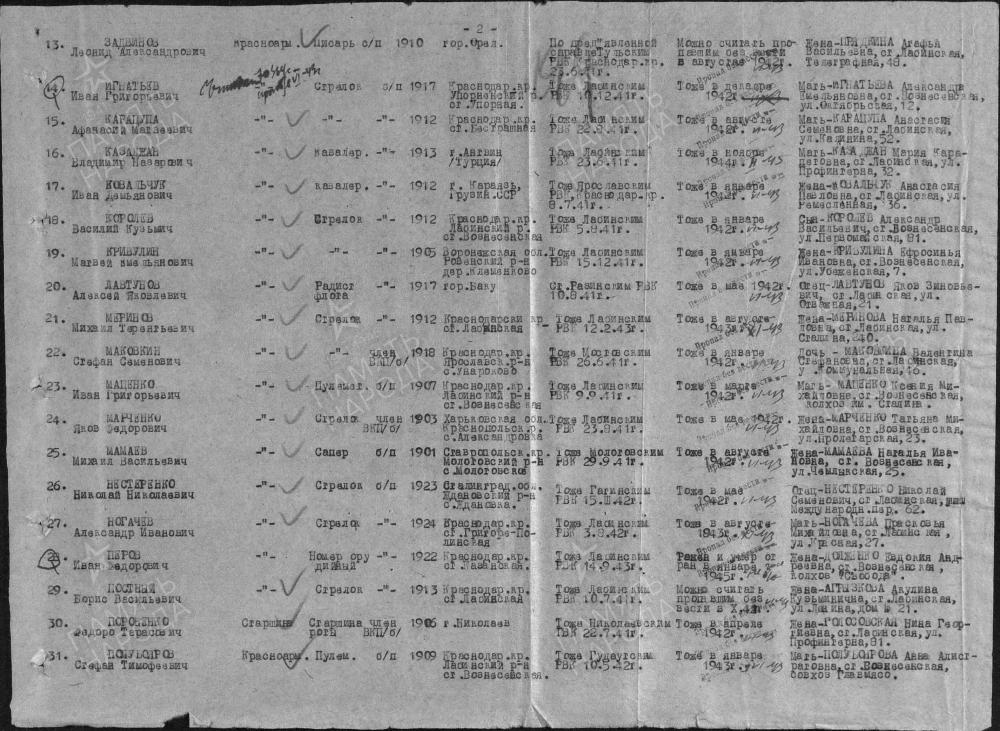 - 2 -
13. ЗАДВИНОВ Красноарм. Писарь с/п 1910 гор.Орел. По пред"явленной Можно считать про- Жена-ПРЯДКИНА Агафья
Леонид Александрович справке Тульским павшим без вести Васильевна, ст.Лабинская,
РВК Краснодар.кр. в августе 1942г. Телеграфная, 48.
23.6.41г.
14. ИГНАТЬЕВ Стрелок с/п 1917 Краснодар.кр. Тоже Лабинским Тоже в декабре Мать-ИГНАТЬЕВА Александра
Иван Григорьевич Упорненский р. РВК 10.12.41г. 1942г. Емельяновна, ст.Вознесенская,
ст.Упорная. ул.Октябрьская, 12.
15. КАРАЦУПА -"- -"- -"- 1912 Краснодар.кр. Тоже Лабинским Тоже в августе Мать-КАРАЦУПА Анастасия
Афанасий Матвеевич ст.Бесстрашная РВК 22.9.41г. 1942г. Семеновна, ст.Лабинская,
ул.Калинина, 52.
16. КАЗАДЖАН -"- кавалер. -"- 1913 г.Ангвин Тоже Лабинским Тоже в ноябре Мать-КАЗАДЖАН Мария Кара-
Владимир Назарович /Турция/ РВК 23.6.41г. 1944г. петовна, ст.Лабинская, ул.
Профинтерна, 32.
17. КОВАЛЬЧУК -"- кавалер. -"- 1912 г. Караязь, Тоже Ярославским Тоже в январе Жена-КОВАЛЬЧУК Анастасия
Иван Демьянович Грузин.ССР РВК, Краснодар.кр. 1942г. Павловна, ст.Лабинская, ул.
8.7.41г. Ремесленная, 36.
18. КОРОЛЕВ -"- Стрелок -"- 1912 Краснодар.кр. Тоже Лабинским Тоже в январе Сын-КОРОЛЕВ Александр
Василий Кузьмич Лабинский р. РВК 5.8.41г. 1942г. Васильевич, ст.Вознесенская,
ст.Вознесенская ул.Первомайская, 81.
19. КРИВУЛИН -"- -"- -"- 1905 Воронежская обл. Тоже Лабинским Тоже в январе Жена-КРИВУЛИНА Ефросинья
Матвей Емельянович Ровенский р-н РВК 15.12.41г. 1942г. Ивановна, ст.Вознесенская,
дер.Клеменково ул.Убеженская, 7.
20. ЛАВТУНОВ -"- Радист -"- 1917 гор.Баку Ст.Разинским РВК Тоже в мае 1942г. Отец-ЛАВТУНОВ Яков Зиновье-
Алексей Яковлевич флота 10.8.41г. вич, ст.Лабинская, ул.
Отважная, 21.
21. МЕРИНОВ -"- Стрелок -"- 1912 Краснодарский кр Тоже Лабинским Тоже в августе Жена-МЕРИНОВА Наталья Пав-
Михаил Терентьевич ст.Лабинская РВК 12.2.43г. 1943г. ловна, ст.Лабинская, ул.
Сталина, 240.
22. МАКОВКИН -"- -"- член 1918 Краснодар.кр. Тоже Мостовским Тоже в январе Дочь - МАКОВКИНА Валентина
Стефан Семенович ВКП/б/ Ярославск.р-н РВК 26.6.41г. 1942г. Стефановна, ст.Лабинская,
с.Унароково у.Коммунальная, 46.
23. МАЦЕНКО -"- Пулемет. б/п 1907 Краснодар.кр. Тоже Лабинским Тоже в марте Мать- МАЦЕНКО Ксения Ми-
Иван Григорьевич Лабинский р-н РВК 9.9.41г. 1942г. хайловна, ст.Вознесенская,
ст.Вознесенская колхоз им. Сталина.
24. МАРЧЕНКО -"- Стрелок член 1903 Харьковская обл. Тоже Лабинским Тоже в мае 1942г. Жена-МАРЧЕНКО Татьяна Ми-
Яков Федорович ВКП/б/ Краснопольск.р. РВК 23.8.41г. хайловна, ст.Вознесенская,
с.Александровка ул.Пролетарская, 23.
25. МАМАЕВ -"- Сапер б/п 1901 Ставропольск.кр. Тоже Мологовским Тоже в августе Жена-МАМАЕВА Наталья Ива-
Михаил Васильевич Мологовский р-н РВК 29.9.41г. 1942г. новна, ст. Вознесенская,
с.Мологовское ул.Чамлыкская, 25.
26. НЕСТЕРЕНКО -"- Стрелок б/п 1923 Сталинград.обл. Тоже Гагинским Тоже в мае Отец-НЕСТЕРЕНКО Николай
Николай Николаевич Ждановский р-н РВК 15.III.42г. 1942г. Семенович, ст.Лабинская,
с.Ждановка. Международн.пер. 62.
27. НОГАЧЕВ -"- Стрелок -"- 1924 Краснодар.кр. Тоже Лабинским Тоже в августе Мать-НОГАЧЕВА Прасковья
Александр Иванович ст.Григоре-По- РВК 3.8.42г. 1943г. Михайловна, ст.Лабинская,
линская ул.Красная, 27.
28. ПЕРОВ -"- Номер ору -"- 1922 Краснодар.кр. Тоже Лабинским Ранен и умер от Жена-ДОЛЖЕНКО Евдокия Анд-
Иван Федорович дийный ст.Казанская. РВК 14.9.43г. ран в январе, 1945г. реевна, ст.Вознесенская,
колхоз "Свобода".
29. ПОСТНЫЙ -"- Стрелок -"- 1913 Краснодар.кр. Тоже Лабинским Можно считать Жена- Акулина
Борис Васильевич ст.Лабинская РВК 10.7.41г. пропавшим без Кузьминична, ст.Лабинская,
вести в X.42г. ул.Ленина, дом № 21.
30. ПОРОБЕНКО Старшина Старшина член 1906 г.Николаев Тоже Николаевским Тоже в апреле Жена-ГОЛОСОВСКАЯ Нина Геор-
Федор Тарасович роты ВКП/б/ РВК 22.7.41г. 1942г. гиевна, ст.Лабинская, ул.
Профинтерна, 81.
31. ПОЛУБОЯРОВ Красноарм. Пулем. б/п 1909 Краснодар.кр. Тоже Гудаутским Тоже в январе Мать-ПОЛУБОЯРОВА Анна Алист-
Стефан Тимофеевич Лабинский р-н РВК 10.5.42г. 1943г. ратовна, ст.Вознесенская,
ст.Вознесенская. совхоз Главмясо.